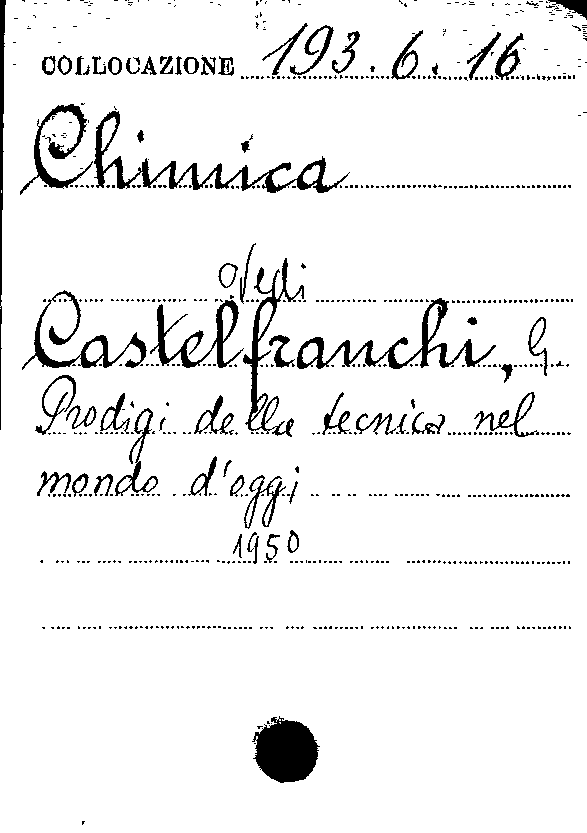 COLLOCAZIONE 193.6.16
Chimica
Vedi
Castelfranchi, G.
Prodigi della tecnica nel
mondo d'oggi
1950